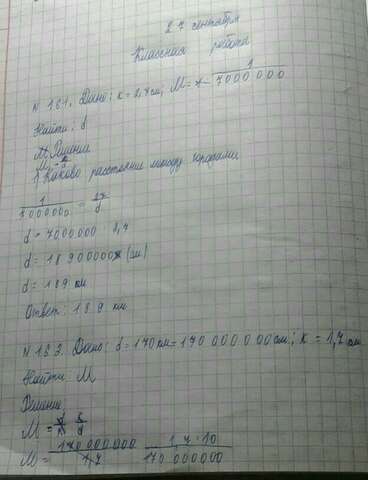 27 сентября
Классная работа
N 161. Дано: к = 2,7см; М = 1/7000000
Найти: d
Решение
Каково расстояние между городами
1/7000000 = 2,7/d
d = 7000000 2,7
d = 18900000 (см)
d = 189 км
Ответ: 189 км
N 162. Дано: d = 170км = 170 000 000см; к = 1,7 см
Найти: М
Решение
М = к/d
М = 170 000000/1,7 1,7·10/170 000000